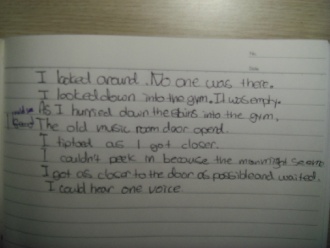 I looked around. No one was there.
I looked down into the gym. It was empty.
As I hurried down the stairs into the gym.
The old music room door opend.
I tiptoed as I got closer.
I couldn't peek in because the moonlight
I got as closer to the door as possible and waited.
I could hear one voice.